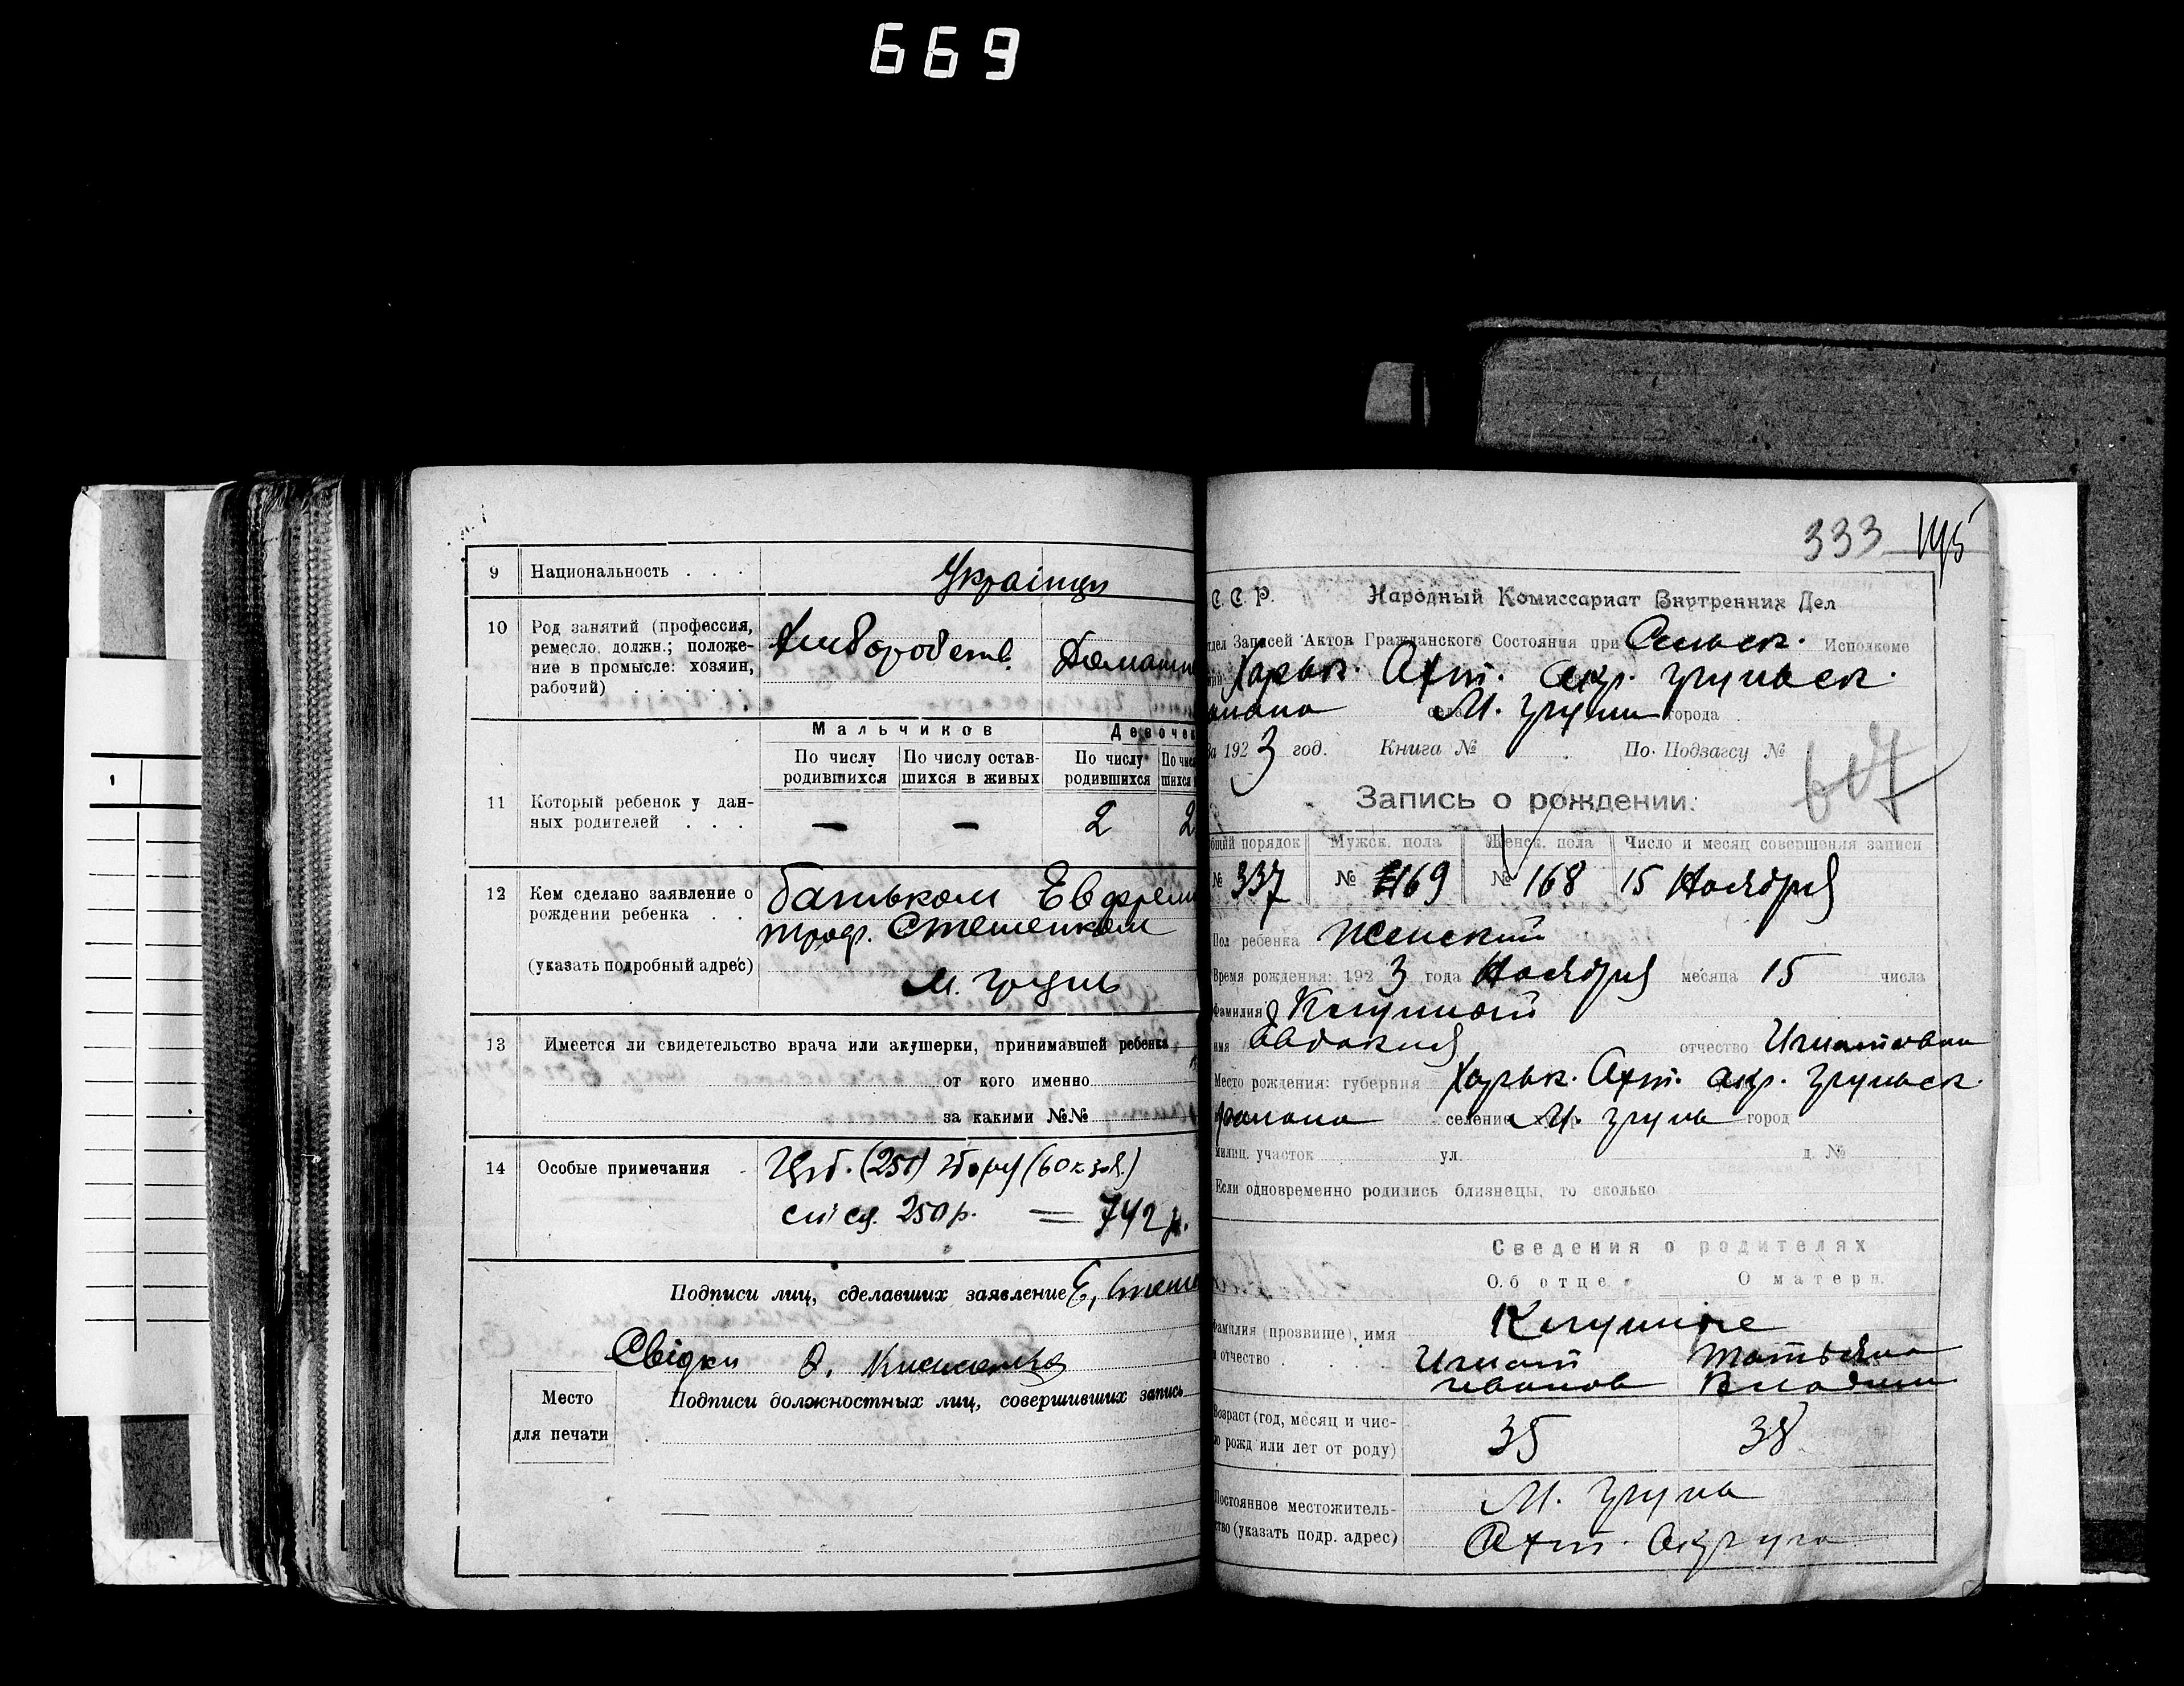 669
9 Национальность . . . Українци
10 Род занятий (профессия,
ремесло, должн.; положе-
ние в промысле: хозяин,
рабочий) . . . . .
Хлиборобств. Домашн
11 Который ребенок у дан-
ных родителей . . .
Мальчиков Девочек
По числу родившихся
По числу остав-
шихся в живых
По числу родившихся
— — 2 2
12 Кем сделано заявление о
рождении ребенка . .
(указать подробный адрес)
батьком Евфрем
троф. Стешенком
М. Грунь
13 Имеется ли свидетельство врача или акушерки, принимавшей ребенка
от кого именно
за какими №№
14 Особые примечания
(250) збору (60 к. зол.)
250 р. = 742 р.
Подписи лиц, сделавших заявление Е. Стеше
Свідки
Место
для печати
Подписи должностных лиц, совершивших запись
333 195
С. С. Р. Народный Комиссариат Внутренних Дел
тдел Записей Актов Гражданского Состояния при Сельск. Исполкоме
Харьк. Ахт. окр. Груньск.
М. Грунь города
За 1923 год. Книга № По Подзагсу №
617
Запись о рождении.
общий порядок Мужск. пола Женск. пола Число и месяц совершения записи
№ 337 № 169 № 168 15 Ноября
Пол ребенка Женский
Время рождения: 1923 года Ноября месяца 15 числа
Фамилия
имя Евдокия отчество Игнатовна
Место рождения: губерния Харьк. Ахт. окр. Груньск.
района селение, хутор М. Грунь город
милиц. участок ул. д. №
Если одновременно родились близнецы, то сколько
Сведения о родителях
Об отце. О матери.
Фамилия (прозвище), имя
и отчество . . . .
Игнат Татьяна
Иванов Владим
Возраст (год, месяц и чис-
ло рожд или лет от роду)
35 38
Постоянное местожитель-
ство (указать подр. адрес)
М. Грунь
Ахт. Округа